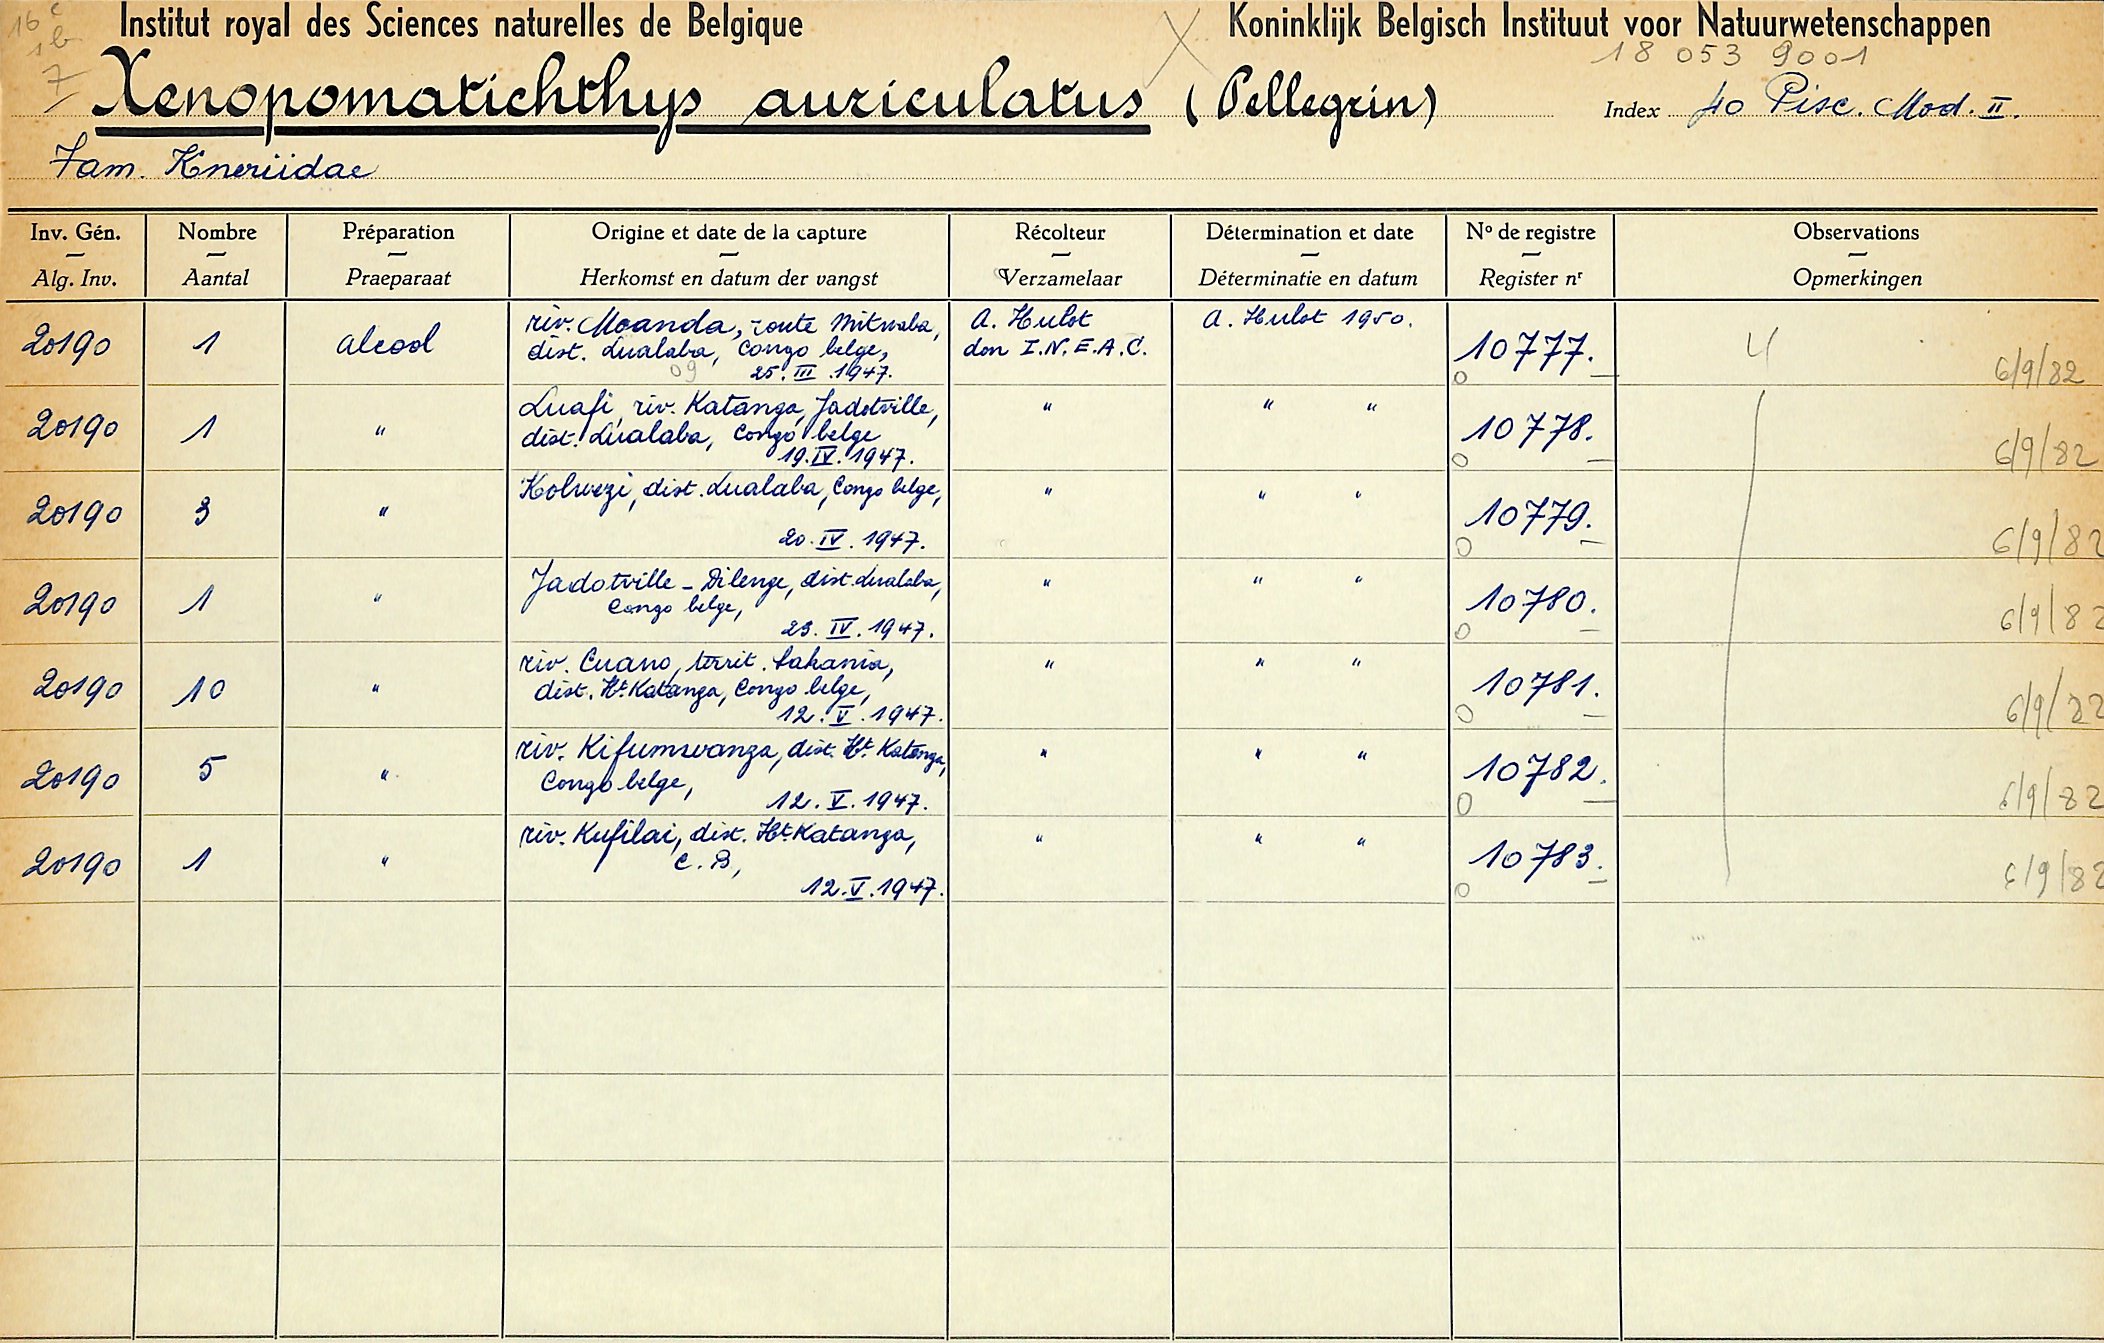 16 c
1b
7
Institut royal des Sciences naturelles de Belgique
Koninklijk Belgisch Instituut voor Natuurwetenschappen
18 053 9001
Xenopomatichthys auriculatus (Pellegrin)
Index 40 Pisc. Mod. II.
Fam. Kneriidae
Inv. Gén. Nombre Préparation Origine et date de la capture Récolteur Détermination et date No de registre Observations
Alg. Inv. Aantal Praeparaat Herkomst en datum der vangst Verzamelaar Déterminatie en datum Register nr Opmerkingen
riv. Moanda, route Mitwaba, A. Hulot A. Hulot 1950.
20190 1 alcool dist. Lualaba, Congo belge, don I.N.E.A.C. 10777. 4
09 25. III. 1947. 0 6/9/82
Luafi, riv. Katanga, Jadotville, " " "
20190 1 " dist. Lualaba, Congo belge 10778.
19. IV. 1947. 0 6/9/82
Kolwezi, dist. Lualaba, Congo belge, " " "
20190 3 " 10779.
20. IV. 1947. 0 6/9/82
Jadotville - Dilenge, dist. Lualaba, " " "
20190 1 " Congo belge, 10780.
23. IV. 1947. 0 6/9/82
riv. Cuano, territ. Sakania, " " "
20190 10 " dist. Ht Katanga, Congo belge, 10781.
12. V. 1947. 0 6/9/82
riv. Kifumwanza, dist. Ht Katanga, " " "
20190 5 " Congo belge, 10782.
12. V. 1947. 0 6/9/82
riv. Kufilai, dist. Ht Katanga, " " "
20190 1 " C. B, 10783.
12. V. 1947. 0 6/9/82